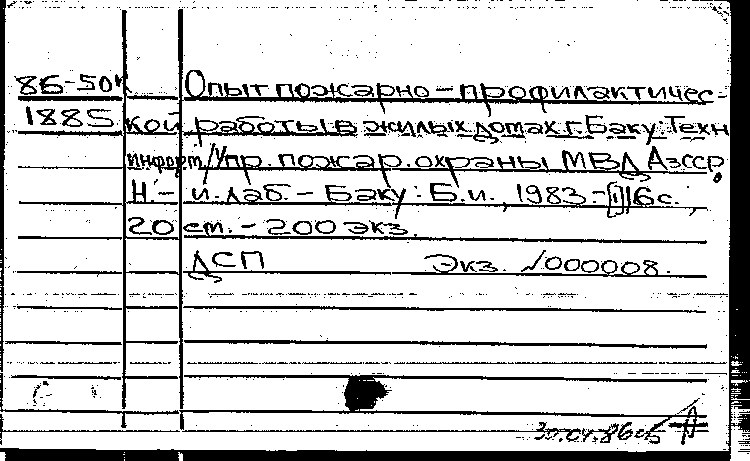 86-50к Опыт пожарно-профилактичес-
1885 кой работы в жилых домах г. Баку: Техн.
информ./Упр. пожар. охраны МВД АзССР.
Н.-и. лаб. - Баку: Б.и., 1983. - [1], 16 с.;
20 см. - 200 экз.
ДСП Экз. √000008.
30.04.86